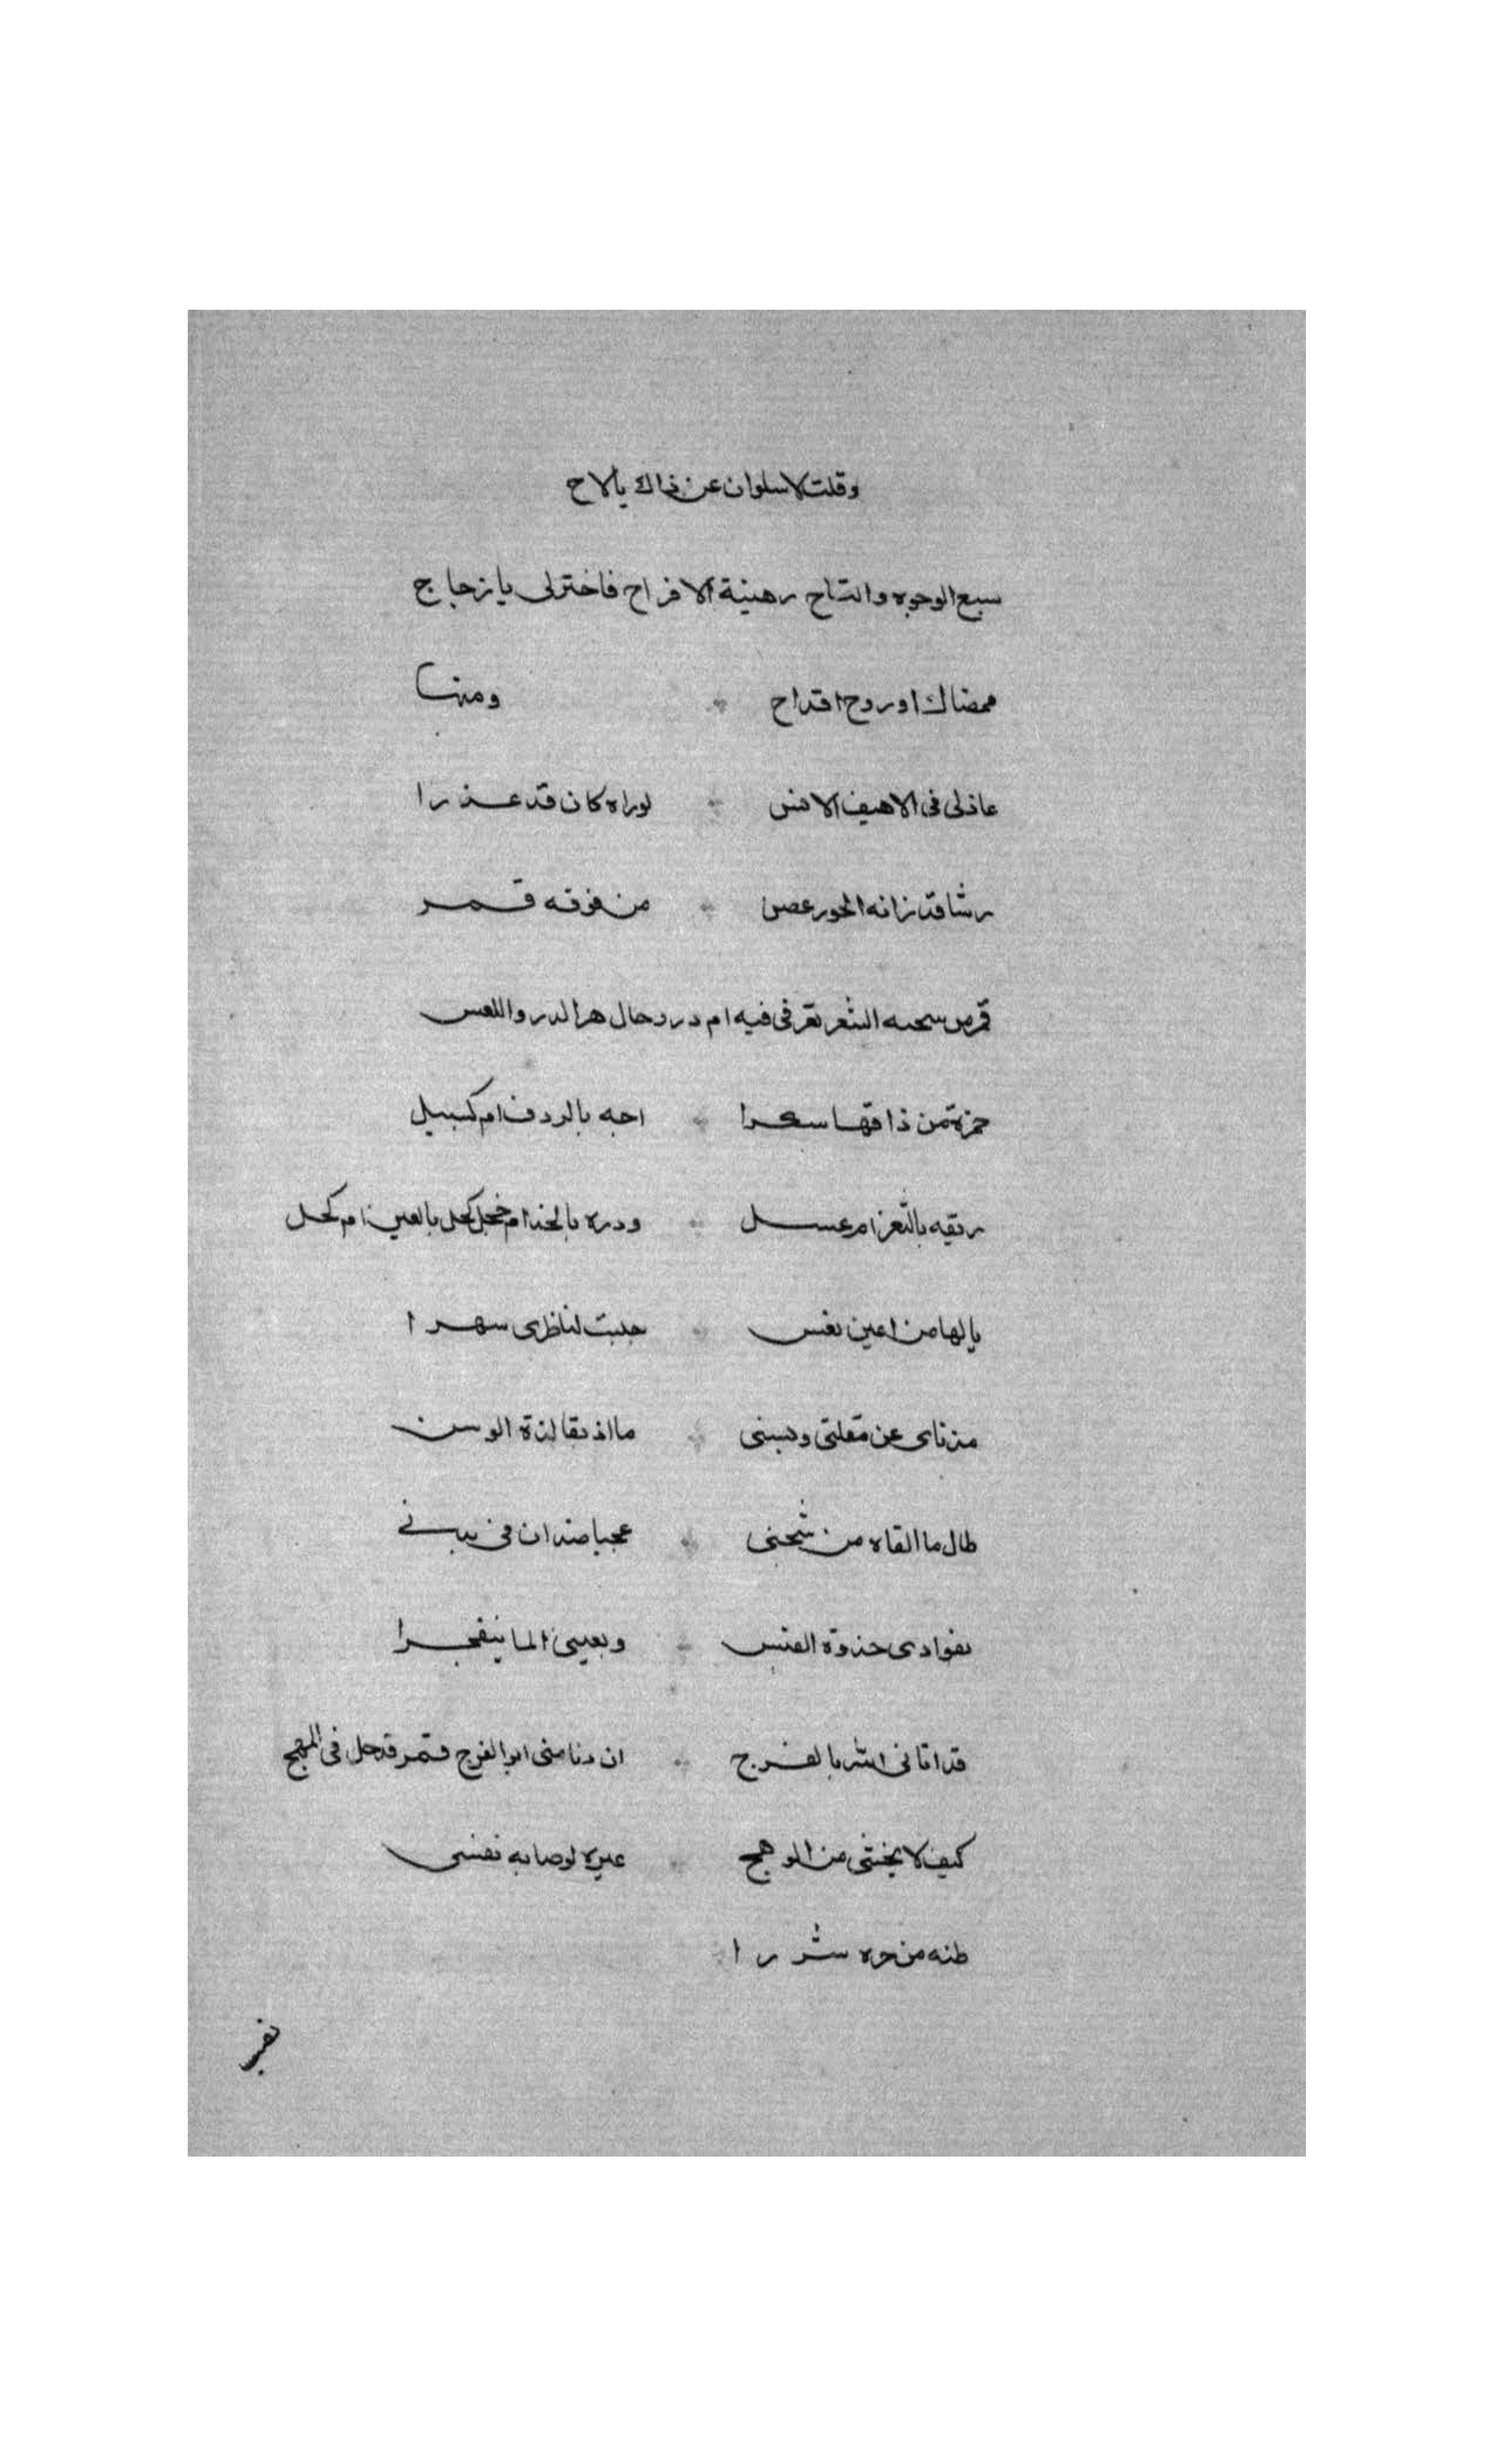 وقلت لا سلوان عن ذاك يالاح
سبع الوجوه والتاح رهينة الافراح فاخترلى يا زجاج
ممضاك اوروح اقداح ومنها
عاذلى فى الاهيف الانس لوراه كان قد عذرا
رشا قد زانه الحور غصن من فوقه قمر
قمر من سحبه الشعر ثغر فى فيه ام درر حال هرا لدر واللعس
خمرة من ذاقها سكرا اجه بالردف ام كسل
ريقه بالثغر ام عسل ودره بالخد ام خجل كحل بالعين ام كحل
يالها من اعين نعس جلبت لناظرى سهرا
مذ ناى عن مقلتى وسنى ما اذيقا لذة الوسن
طال ما القاه من شجنى عجبا ضدان فى بدنى
بفوادى جذوة القبس وبعينى الما ينفجرا
قد اتانى الله بالفرج ان دنا منى ابو الفرج قمر قد حل فى المهج
كيف لا يخشى من الوهج غيره لو صابه نفسى
ظنه من حره شررا